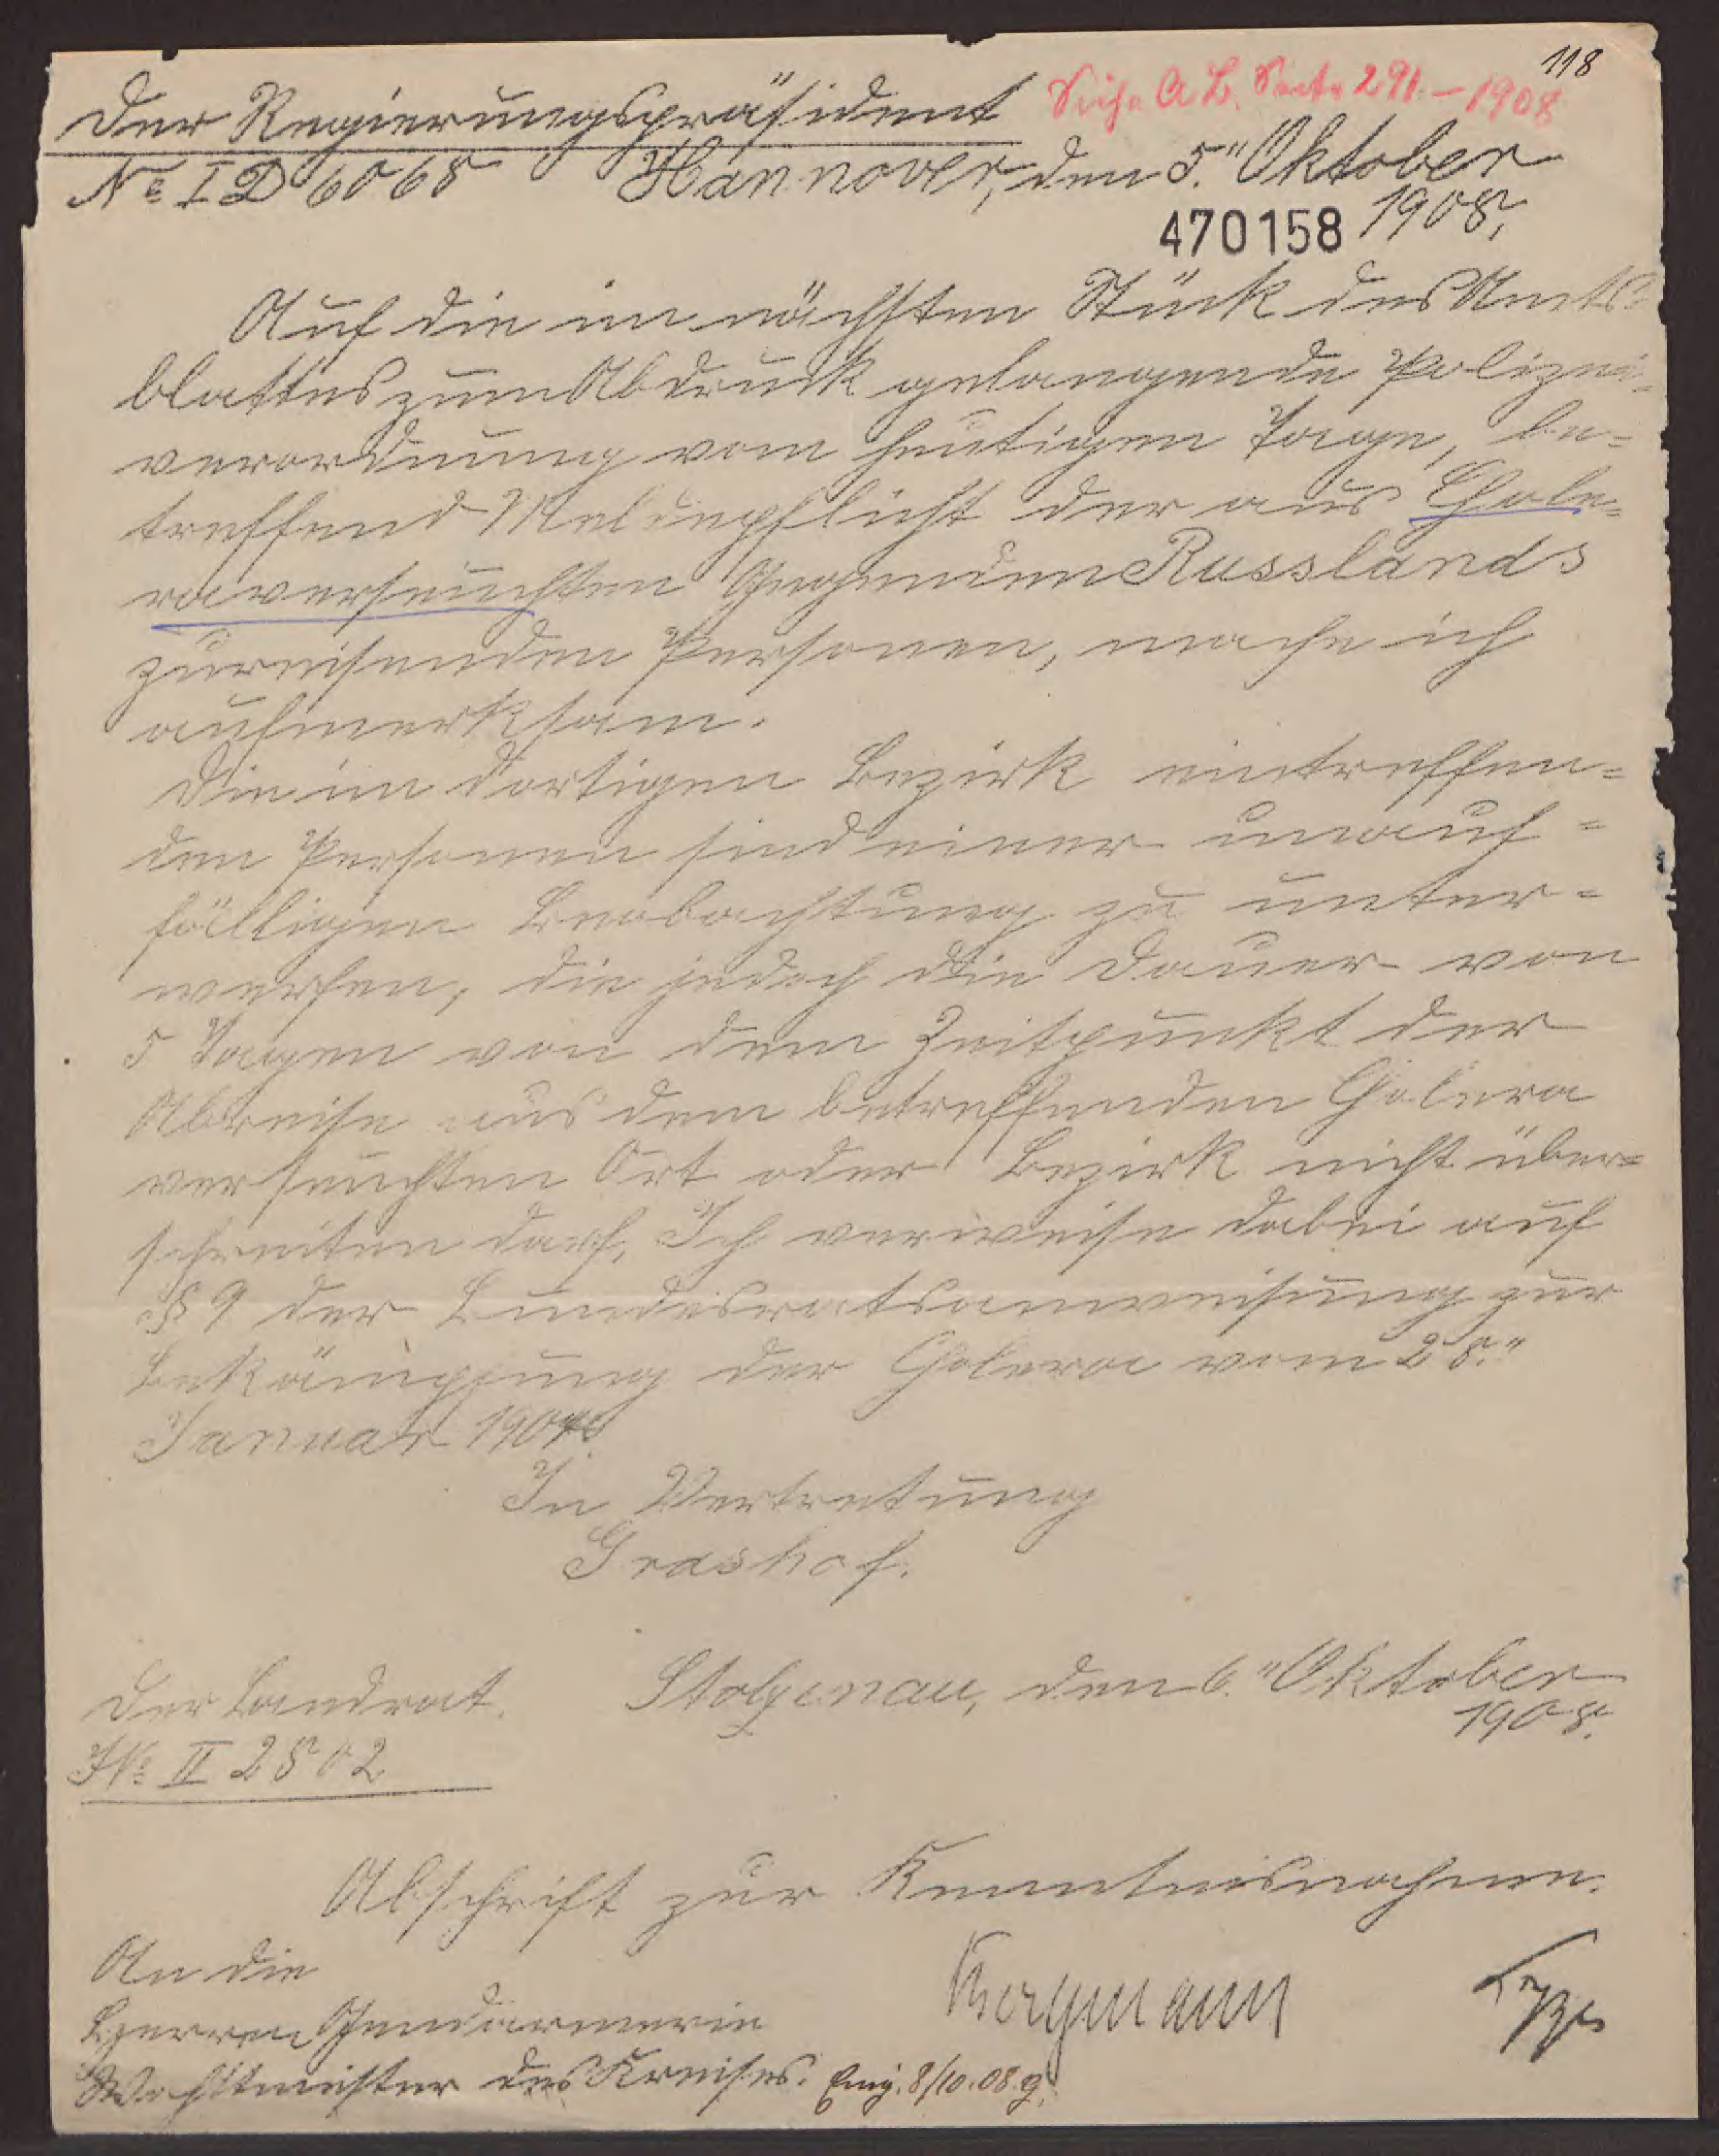 118
Siehe A. B. Seite 291 - 1908
Der Regierungspräsident
No I D 6068 Hannover, den 5." Oktober
1908,
470158
Auf die im nächsten Stück des Amts-
blattes zum Abdruck gelangende Polizei-
verordnung vom heutigen Tage, be-
treffend Meldepflicht der aus Chole-
raverseuchten Gegenden Russlands
zureisenden Personen, mache ich
aufmerksam.
Die im dortigen Bezirk eintreffen-
den Personen sind einer unauf-
fälligen Beobachtung zu unter-
werfen, die jedoch die Dauer von
5 Tagen von dem Zeitpunkt der
Abreise aus dem betreffenden Cholera
verseuchten Ort oder Bezirk nicht über-
schreiten darf. Ich verweise dabei auf
§ 9 der Bundesratsanweisung zur
Bekämpfung der Cholera vom 28."
Januar 1904.
In Vertretung
Grashof.
Der Landrat. Stolzenau, den 6." Oktober
1908.
JNo II 2802
Abschrift zur Kenntnisnahme.
An die
Herren Gendarmerie
Wachtmeister des Kreises. Eing. 8/10.08.
Bergmann